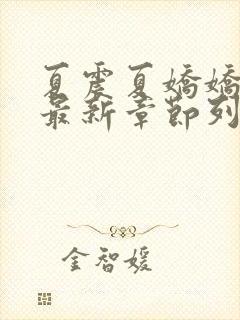 夏震夏嬌嬌
最新章節列
金智媛